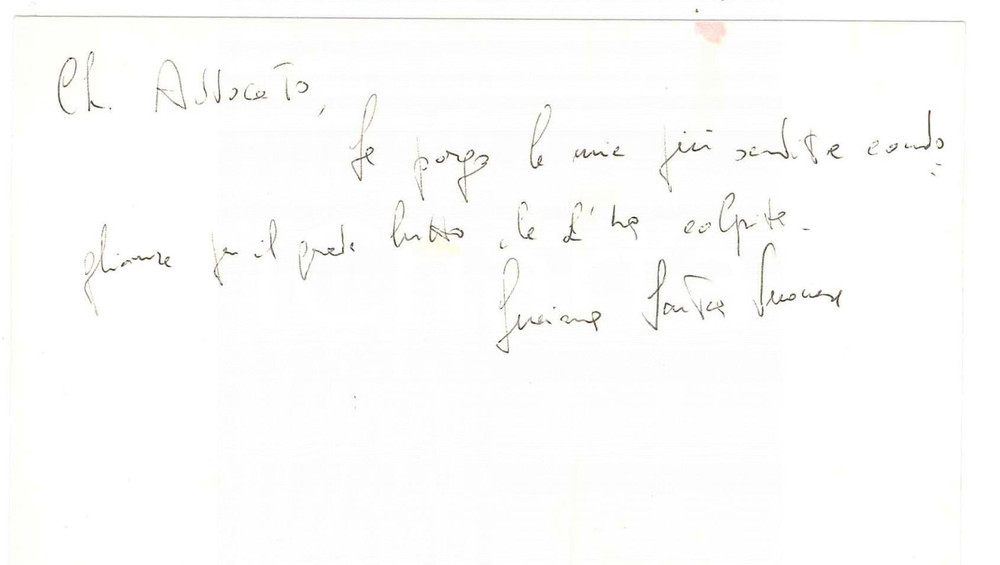 Ch. Avvocato,
Le porgo le mie più sentite condo
glianze per il grave lutto che L'ha colpita.
Luciana